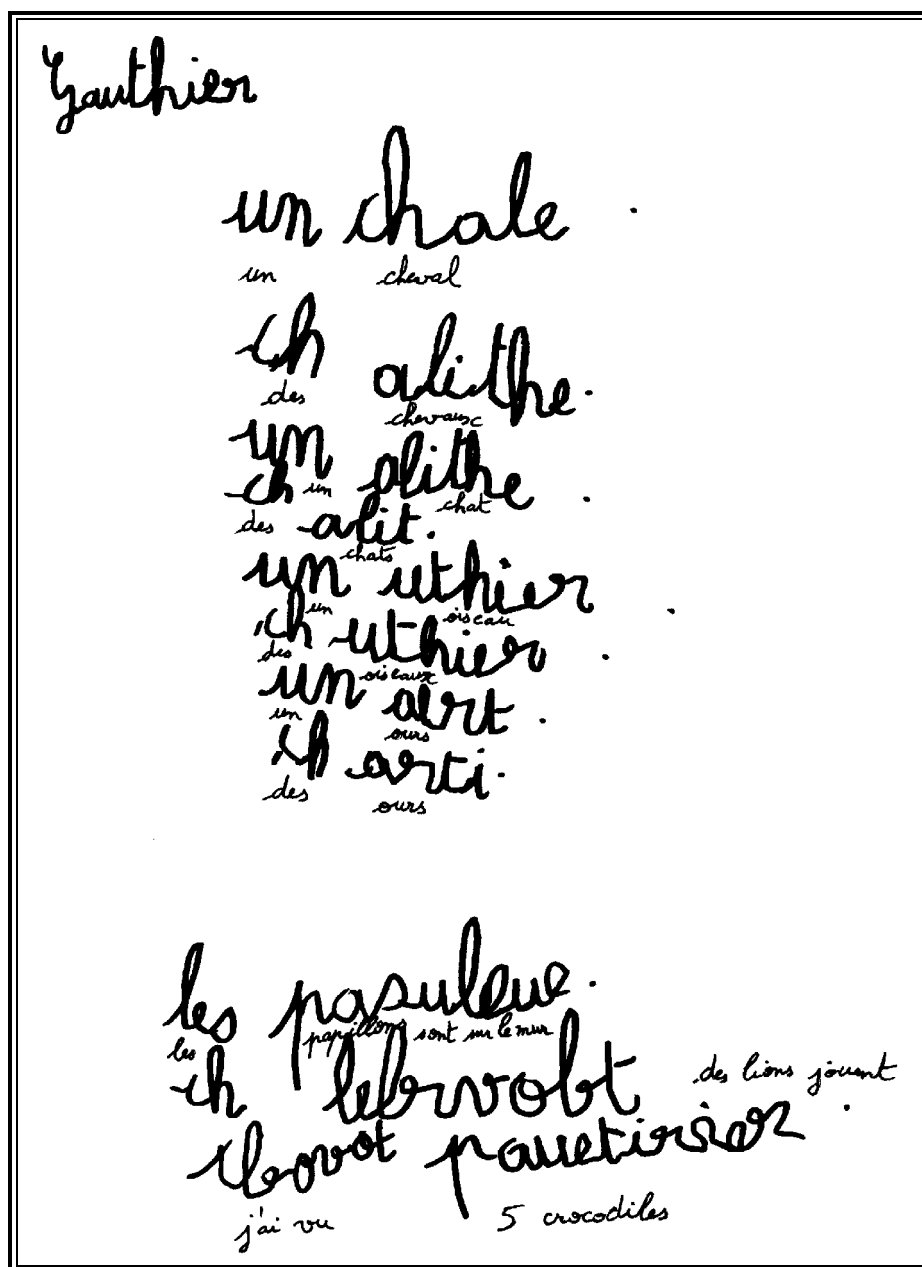 Gauthier
un chale .
un cheval
ch alithe.
des chevaux
un alithe .
un chat
ch alit.
des chats
un uthier .
un oiseau
ch uthier .
des oiseaux
un art .
un ours
ch arti.
des ours
les pasuleue.
les papillons sont sur le mur
ch lebrvobt
des lions jouent
pauetirier .
j'ai vu 5 crocodiles